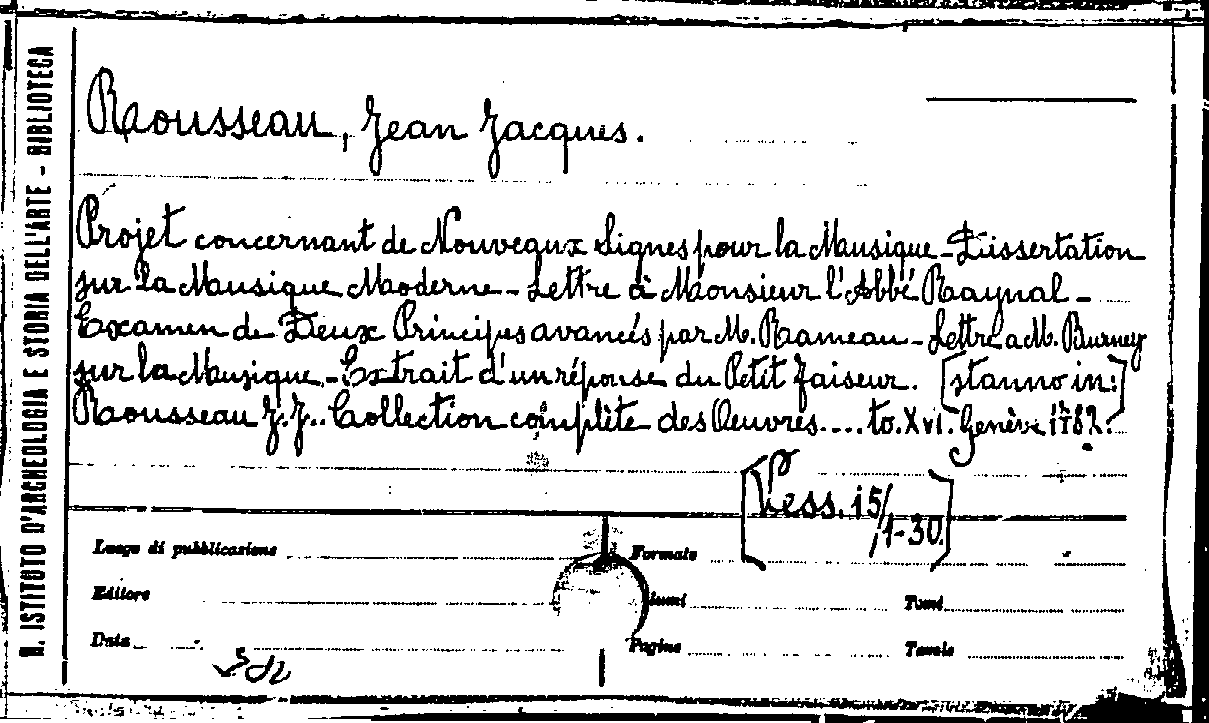 R. ISTITUTO D'ARCHEOLOGIA E STORIA DELL'ARTE - BIBLIOTECA
Rousseau, Jean Jacques.
Projet concernant de Nouveaux Signes pour la Musique - Dissertation
sur la Musique Moderne - Lettre à Monsieur l'Abbé Raynal -
Examen de Deux Principes avancés par M. Rameau - Lettre a M. Burney
sur la Musique - Extrait d'un réponse du Petit faiseur. [stanno in:]
Rousseau J.J. Collection complète des Oeuvres.... to. XVI. Genève 1782.
[Vess. 15/1-30]
Luogo di pubblicazione
Formato
Editore
Tomi
Data
Pagine
Tavole